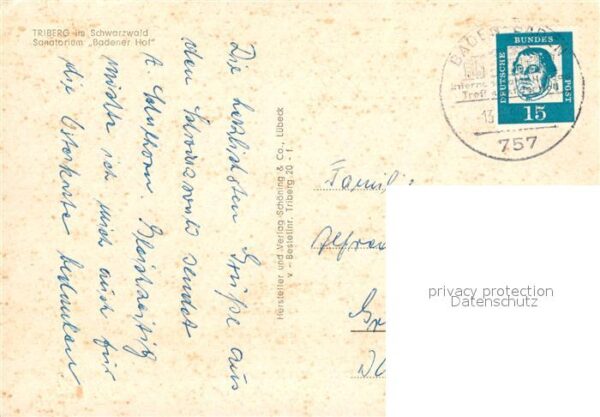 TRIBERG im Schwarzwald
Sanatorium „Badener Hof"
Die herzlichsten Grüße aus
dem Schwarzwald sendet
A.
Gleichzeitig
möchte ich mich auch für
die Osterkarte bedanken.
Hersteller und Verlag Schöning & Co., Lübeck
v - Bestellnr. Triberg 20 - f
BADEN-BADEN
Intern
Tref
13
757
DEUTSCHE BUNDES POST
15
Familie
privacy protection
Datenschutz